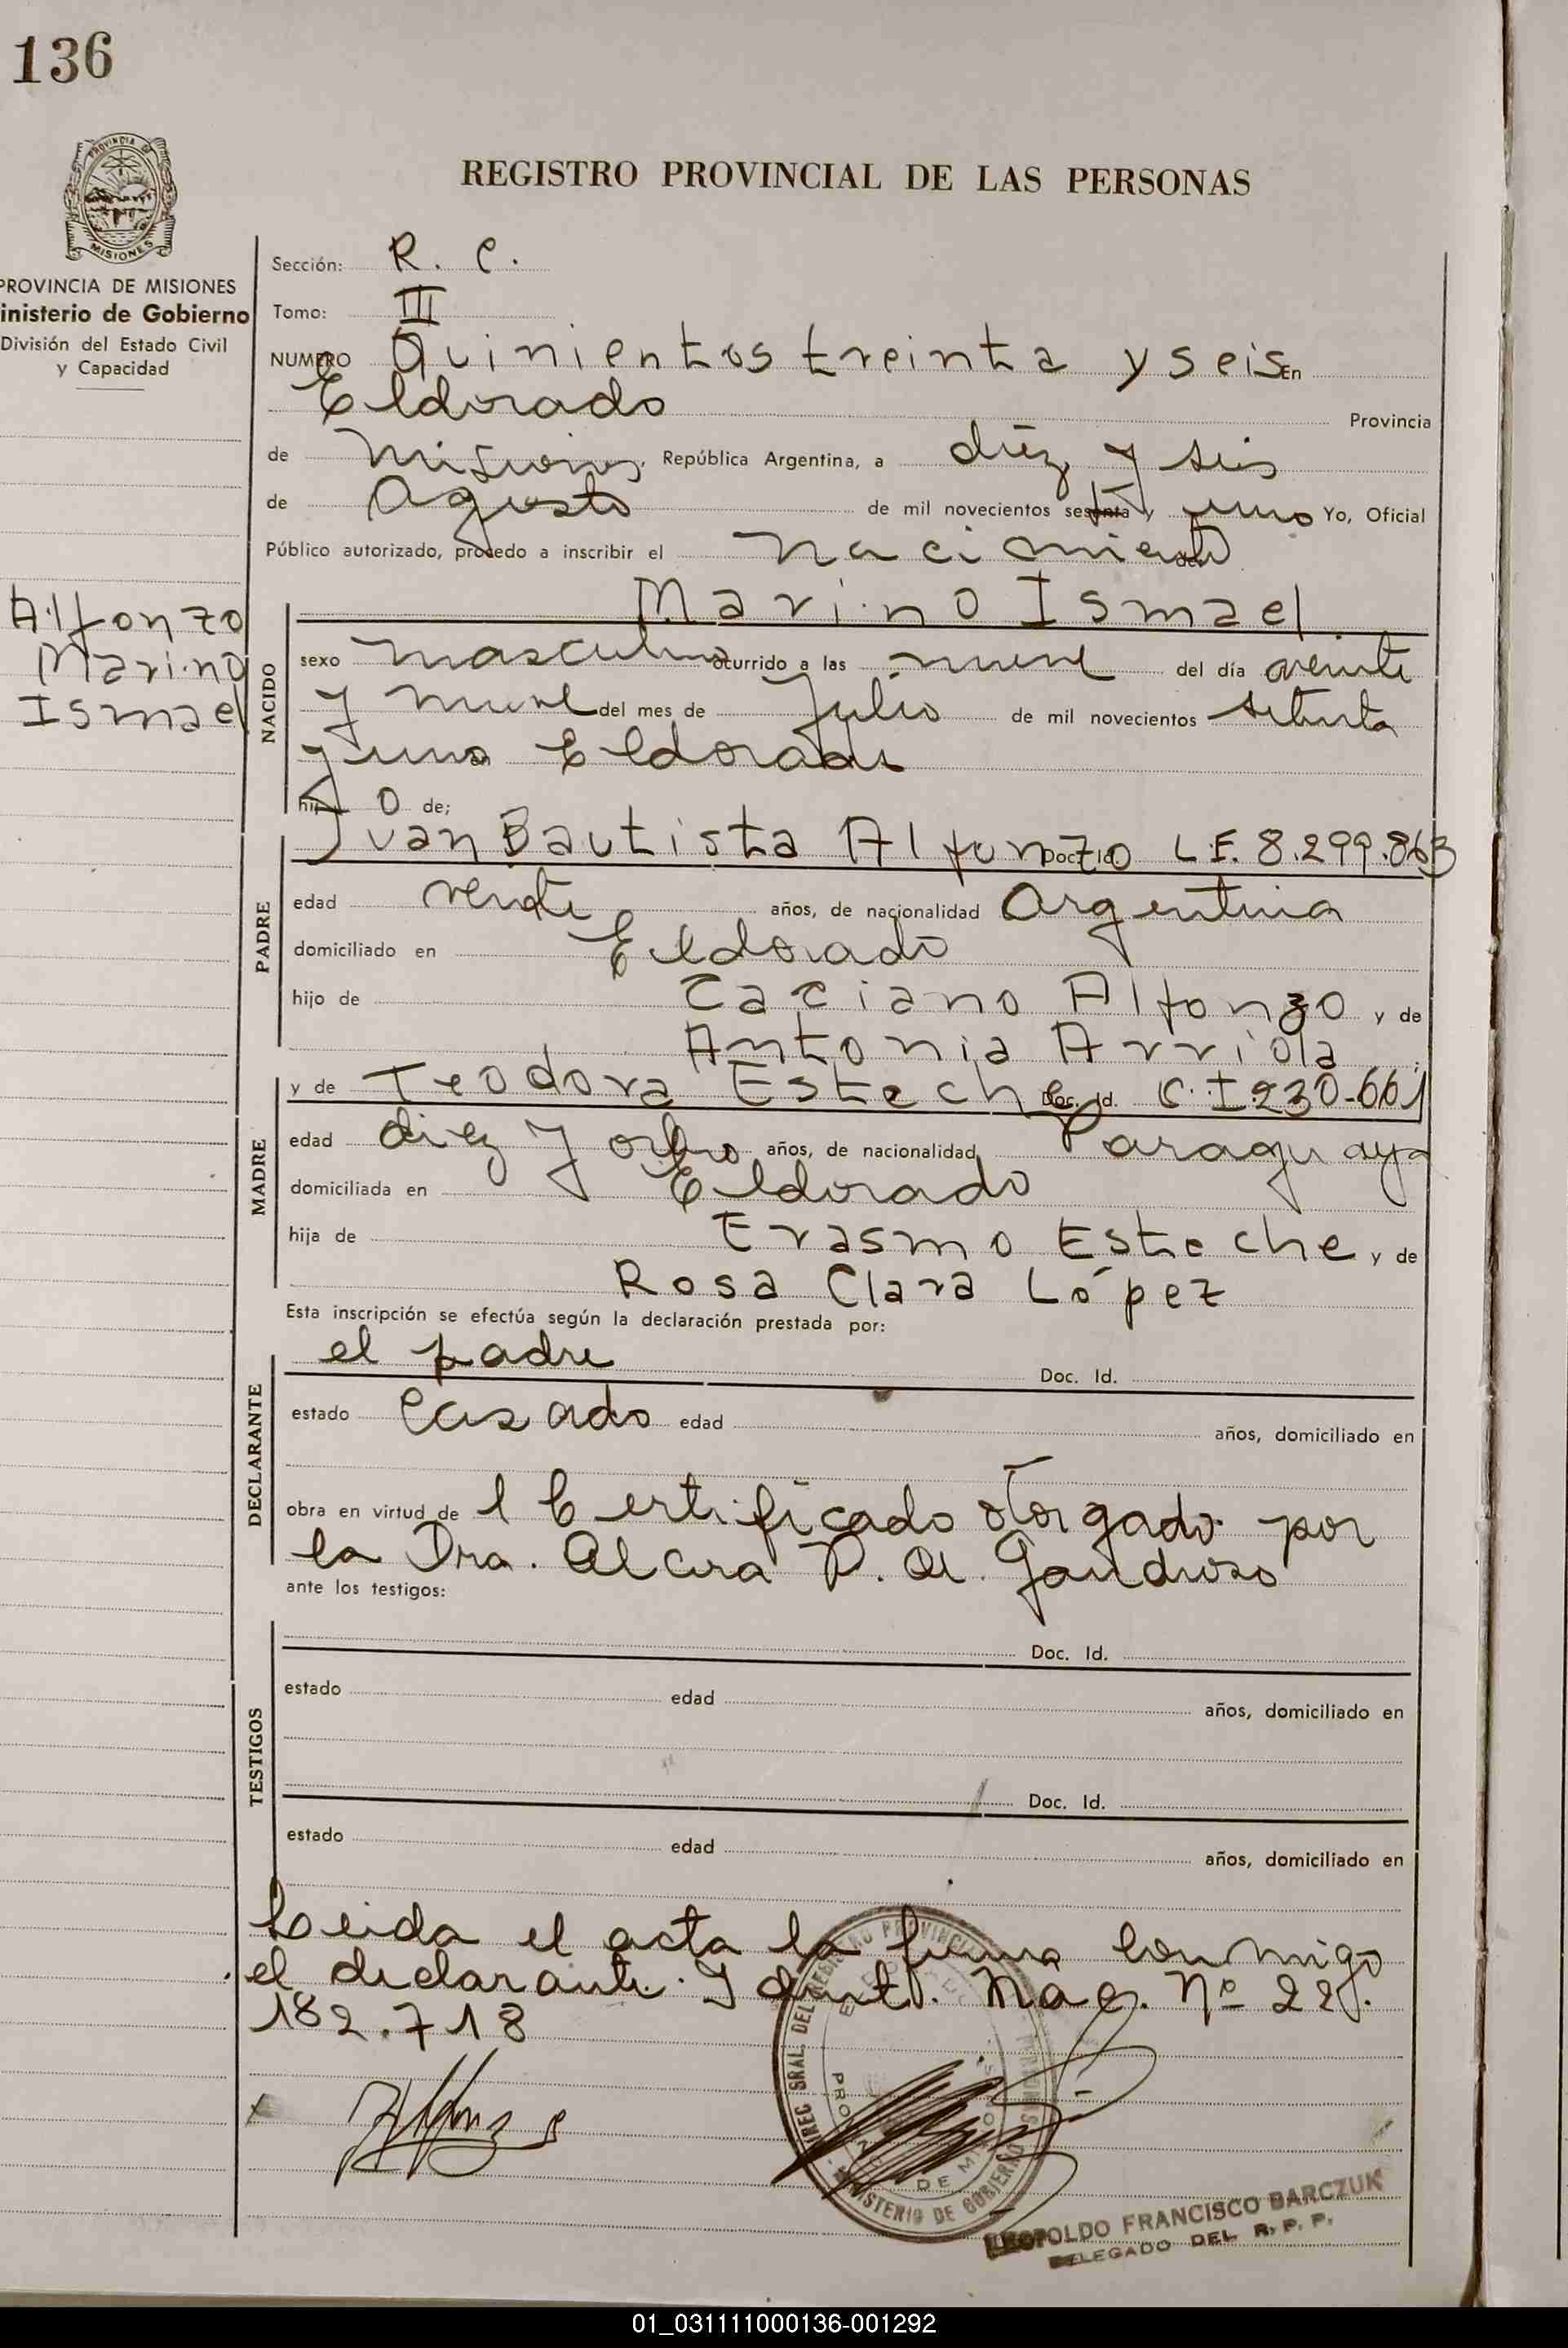 136
PROVINCIA DE
MISIONES
PROVINCIA DE MISIONES
inisterio de Gobierno
División del Estado Civil
y Capacidad
REGISTRO PROVINCIAL DE LAS PERSONAS
Sección: R. C.
Tomo: III
NUMERO Quinientos treinta y seis En
Eldorado Provincia
de Misiones, República Argentina, a diez y seis
de Agosto de mil novecientos setenta y uno Yo, Oficial
Público autorizado, procedo a inscribir el nacimiento de:
Alfonzo
Marino
Ismael
NACIDO
Marino Ismael
sexo masculino ocurrido a las nueve del día veinte
y nueve del mes de Julio de mil novecientos setenta
y uno Eldorado
hijo de;
PADRE
Juan Bautista Alfonzo Doc. Id. L.E. 8.299.863
edad veinte años, de nacionalidad Argentina
domiciliado en Eldorado
hijo de Caciano Alfonzo y de
Antonia Arriola
MADRE
y de Teodora Esteche Doc. Id. C.I 230-661
edad diez y ocho años, de nacionalidad Paraguaya
domiciliada en Eldorado
hija de Erasmo Esteche y de
Rosa Clara López
Esta inscripción se efectúa según la declaración prestada por:
DECLARANTE
el padre Doc. Id.
estado casado edad años, domiciliado en
obra en virtud de l Certificado otorgado por
la Dra. Alcira P. de
ante los testigos:
TESTIGOS
Doc. Id.
estado edad años, domiciliado en
Doc. Id.
estado edad años, domiciliado en
Leida el acta la firma conmigo
el declarante. Ident. Nac. Nº 22.
182.718
Alfonzo
DIREC. GRAL. DEL REGISTRO PROVINCIAL PERSONAS
ELDORADO
PROVINCIA DE MISIONES
MINISTERIO DE GOBIERNO
LEOPOLDO FRANCISCO BARCZUK
DELEGADO DEL R. P. P.
01_031111000136-001292